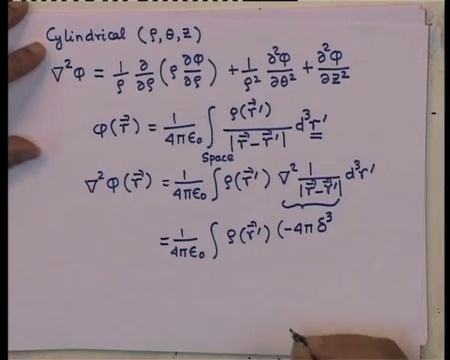 Cylindrical (ρ, θ, z)
∇²φ = 1/ρ ∂/∂ρ (ρ ∂φ/∂ρ) + 1/ρ² ∂²φ/∂θ² + ∂²φ/∂z²
φ(r⃗) = 1/4πε₀ ∫ ρ(r⃗′)/|r⃗−r⃗′| d³r′
Space
∇²φ(r⃗) = 1/4πε₀ ∫ ρ(r⃗′) ∇² 1/|r⃗−r⃗′| d³r′
= 1/4πε₀ ∫ ρ(r⃗′) (−4π δ³